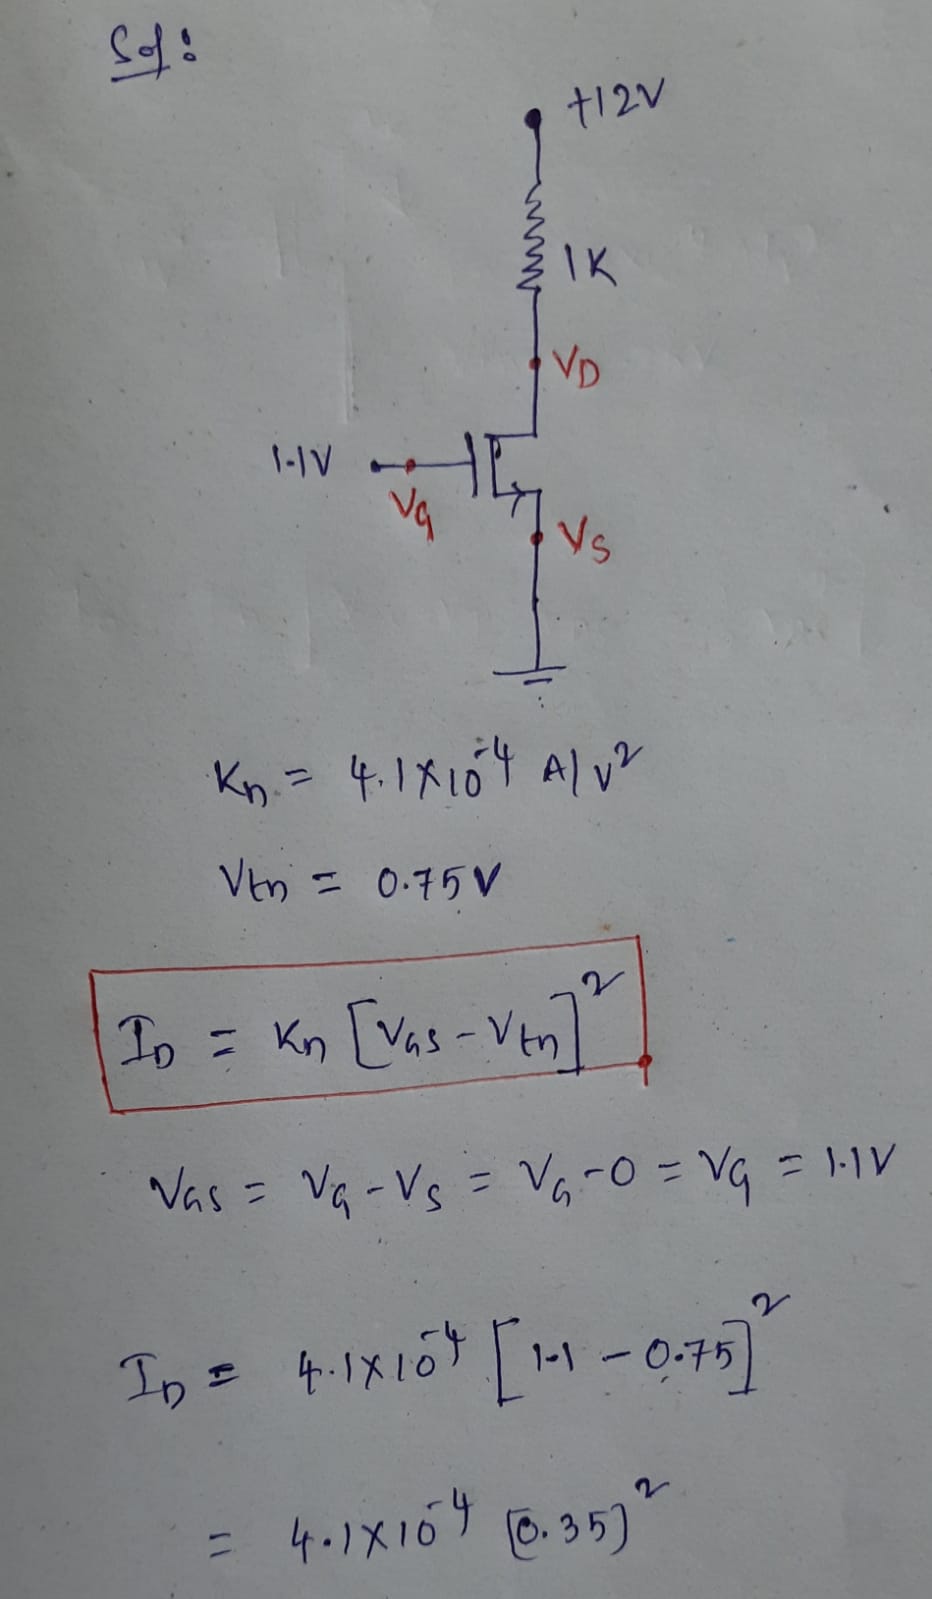 Sol:
+12V
1K
VD
1.1V
VG
VS
Kn = 4.1×10⁻⁴ A/V²
Vtn = 0.75V
ID = Kn [VGS - Vtn]²
VGS = VG - VS = VG - 0 = VG = 1.1V
ID = 4.1×10⁻⁴ [1.1 - 0.75]²
= 4.1×10⁻⁴ [0.35]²